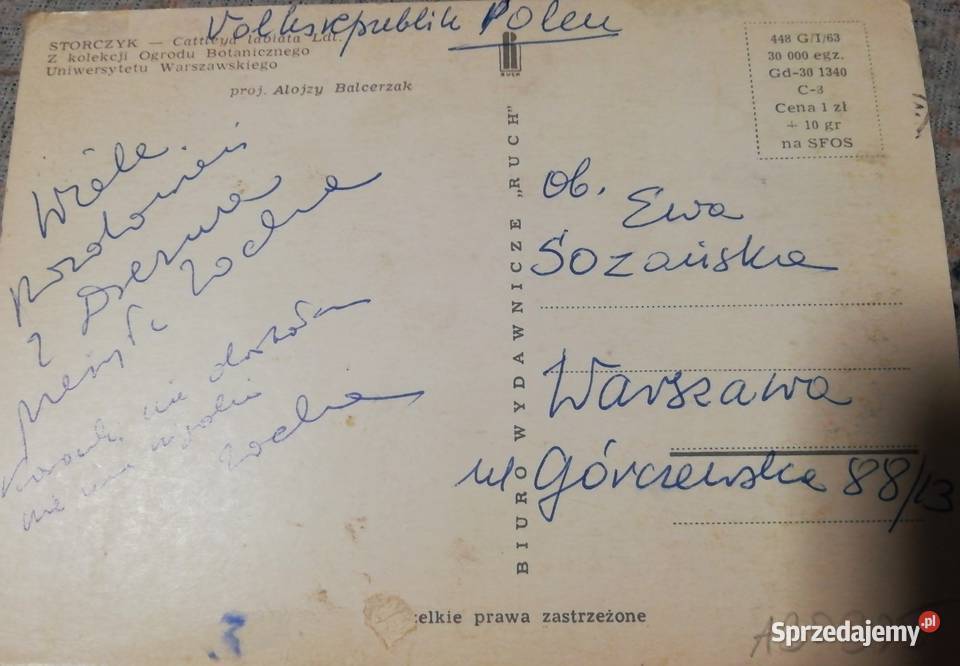 Volksrepublik Polen
STORCZYK — Cattleya labiata Ldl.
Z kolekcji Ogrodu Botanicznego
Uniwersytetu Warszawskiego
proj. Alojzy Balcerzak
RUCH
448 G/I/63
30 000 egz.
Gd-30 1340
C-3
Cena 1 zł
+ 10 gr
na SFOS
Wiele
pozdrowień
z
Zocha
nie
nie ma
Zocha
BIURO WYDAWNICZE „RUCH"
Ob.
Ewa
Sozańska
Warszawa
ul Górczewska 88/13
elkie prawa zastrzeżone
3
Sprzedajemy.pl